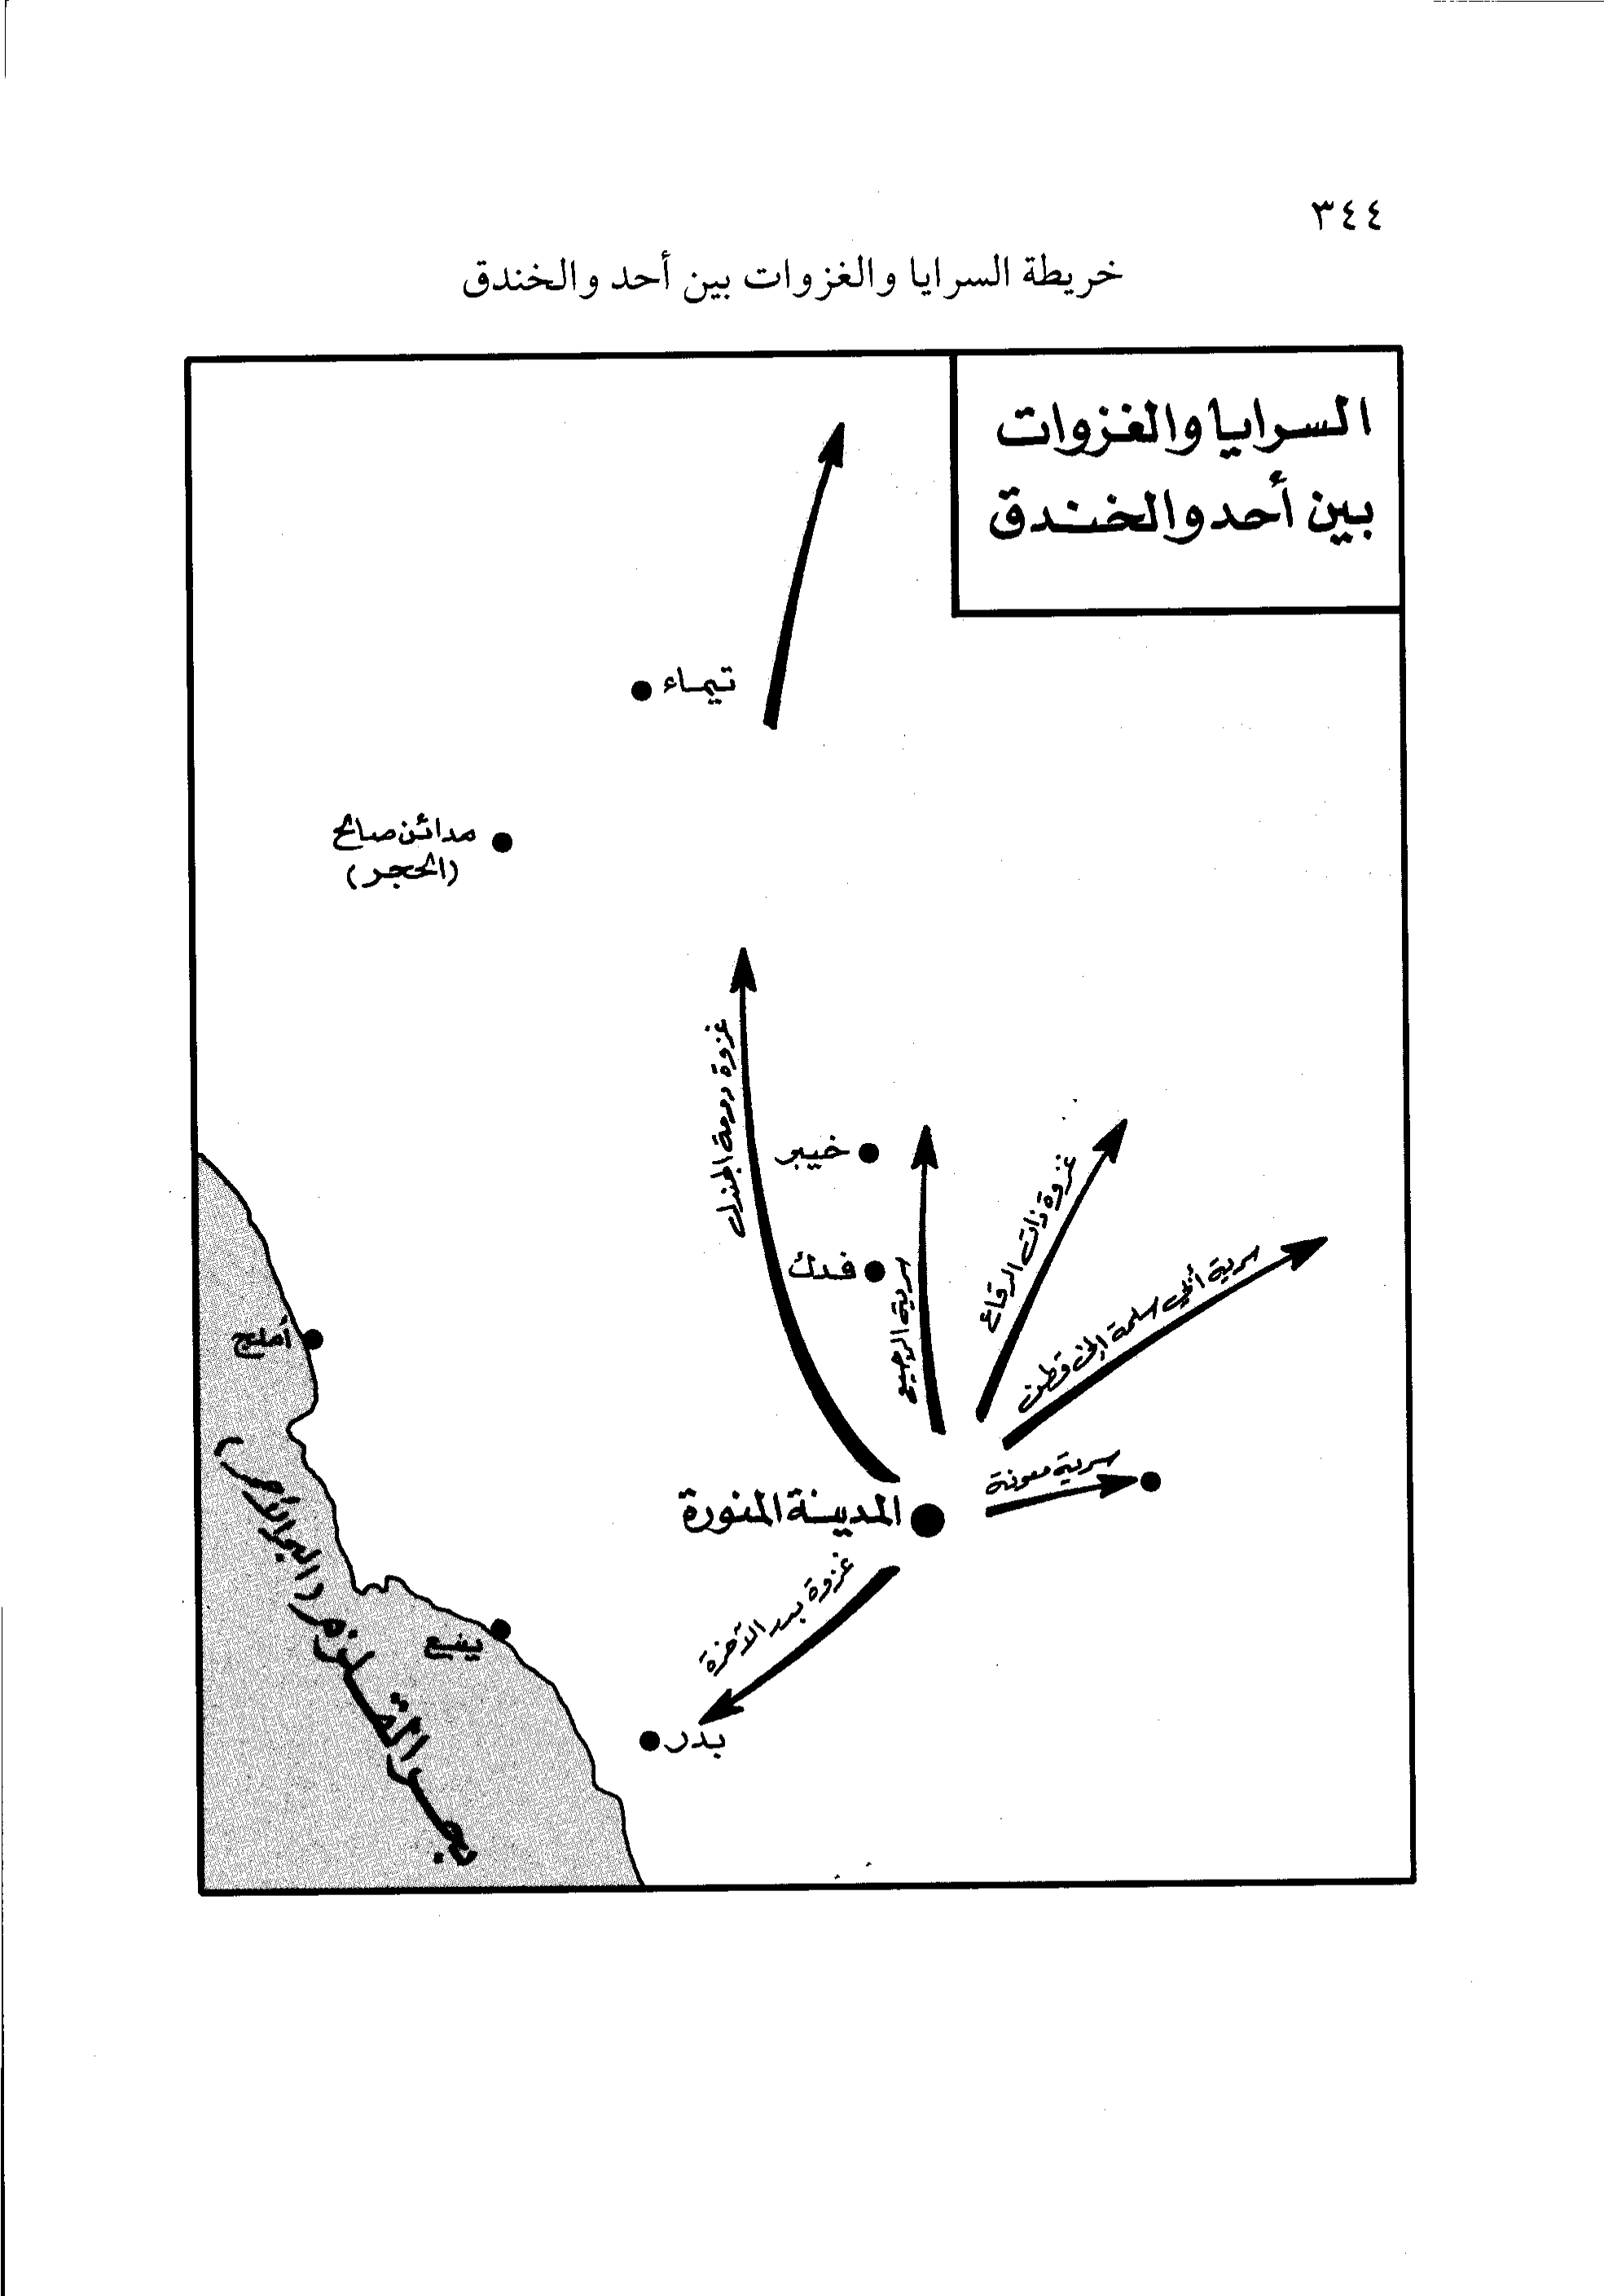 ٣٤٤
خريطة السرايا والغزوات بين أحد والخندق
السرايا والغزوات
بين أحد والخندق
تيماء
مدائن صالح
(الحجر)
غزوة دومة الجندل
خيبر
فدك
سرية الرجيع
غزوة ذات الرقاع
سرية أبي سلمة إلى قطن
سرية معونة
المدينة المنورة
غزوة بدر الآخرة
بدر
أملج
ينبع
بحر القلزم (البحر الأحمر)